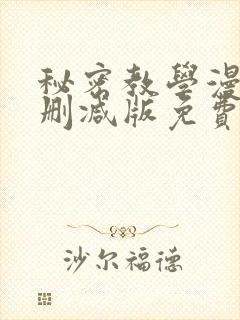 秘密教學漫
刪減版免費
沙尔福德